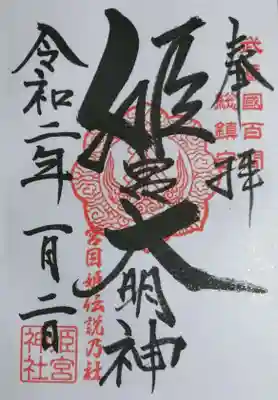 奉拝
武蔵國百間
総鎮守
姫宮大明神
宮目姫伝説乃社
令和二年一月二日
姫宮
神社